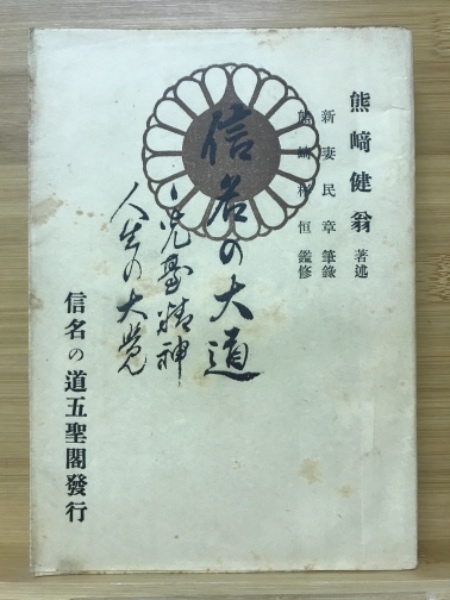 熊﨑健翁 著述
新妻民章 筆錄
熊﨑 恒 鑑修
信名の大道
精神
人生の大覚
信名の道五聖閣發行